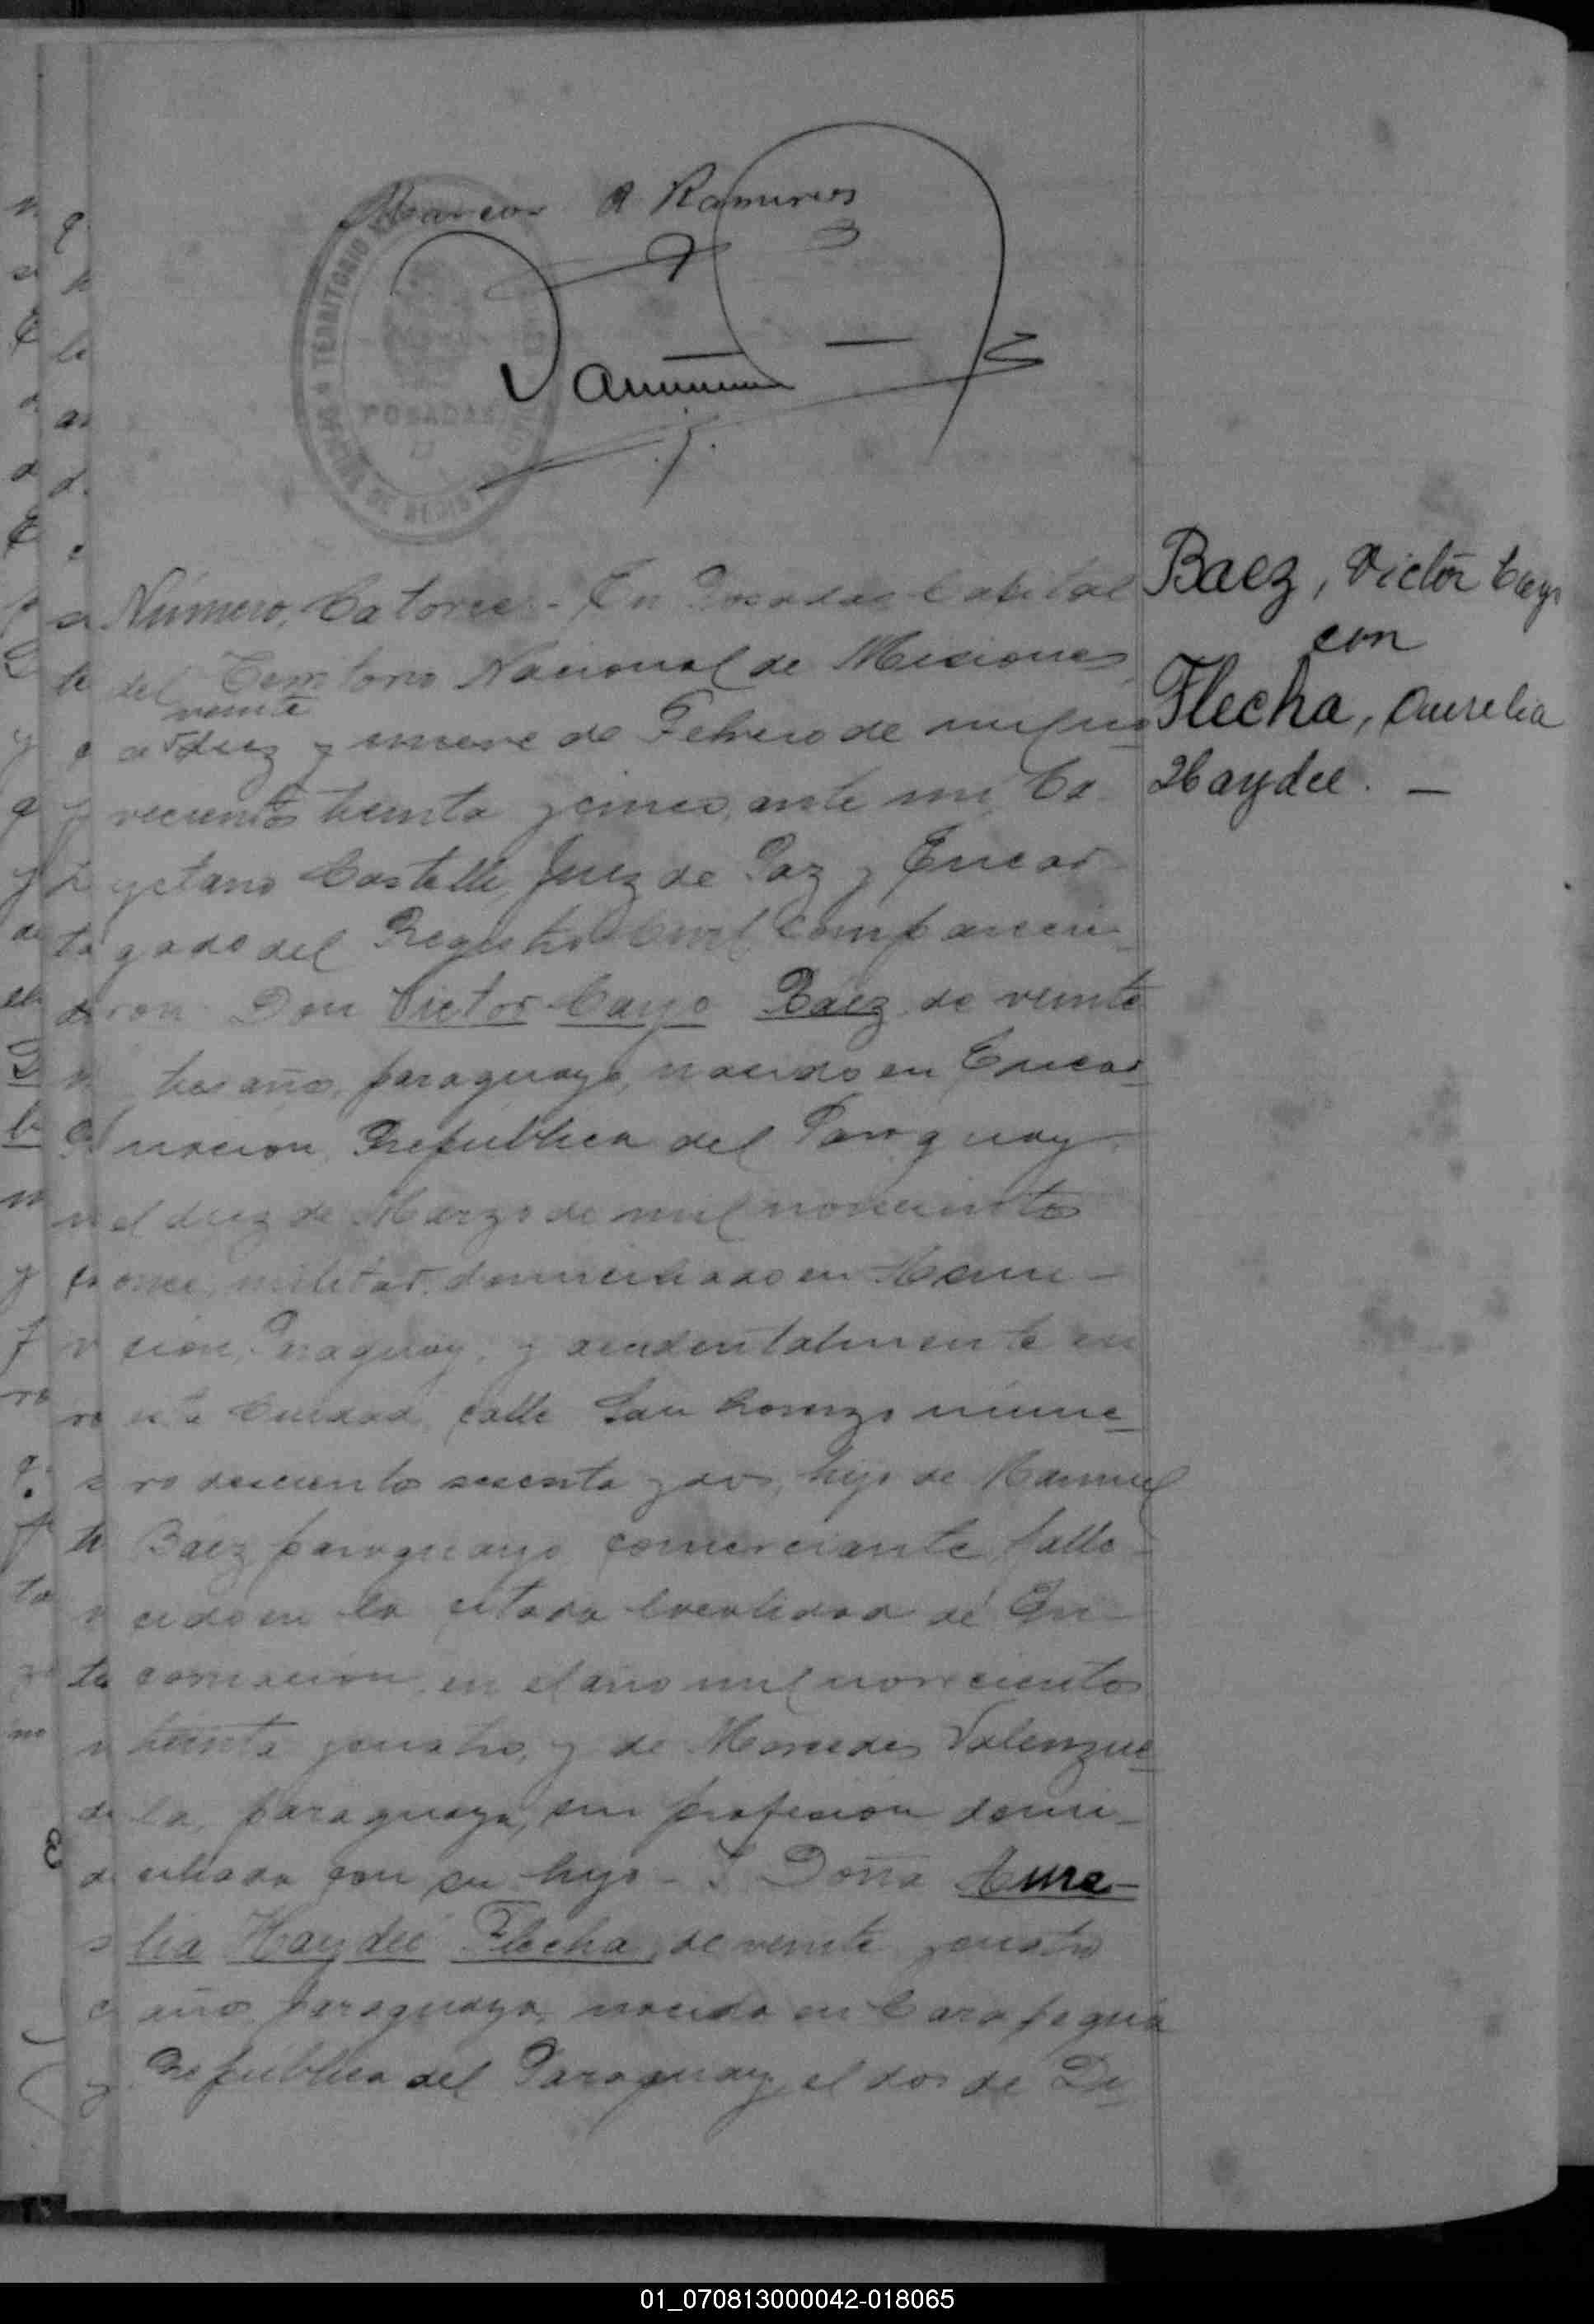 Marcos A Ramirez
TERRITORIO
POSADAS
Baez, Victor Cayo
con
Flecha, Aurelia
Haydee. —
Número, Catorce - En Posadas Capital
del Territorio Nacional de Misiones
veinte
a diez y nueve de Febrero de mil no
vecientos treinta y cinco, ante mi, Ca
yetano Castelli, Juez de Paz y Encar
gado del Registro Civil, comparecie
ron Don Victor Cayo Báez de veinte
tres años, paraguayo, nacido en Encar
nacion, República del Paraguay
el diez de Marzo de mil novecientos
once, militar, domiciliado en Asun-
cion, Paraguay, y accidentalmente en
esta Ciudad, calle San Lorenzo núme
ro doscientos sesenta y dos, hijo de Manuel
Báez paraguayo comerciante falle-
cido en la citada localidad de En-
carnacion, en el año mil novecientos
treinta y cuatro, y de Mercedes Valenzue
la, paraguaya, sin profesion domi-
ciliada con su hijo - Y Doña Aure-
lia Haydeé Flecha, de veinte y cuatro
años paraguaya, nacida en Carapeguá
República del Paraguay, el dos de Di
01_070813000042-018065